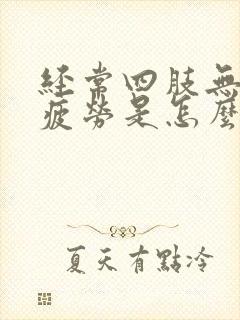 經常四肢無
疲勞是怎麼
夏天有點冷